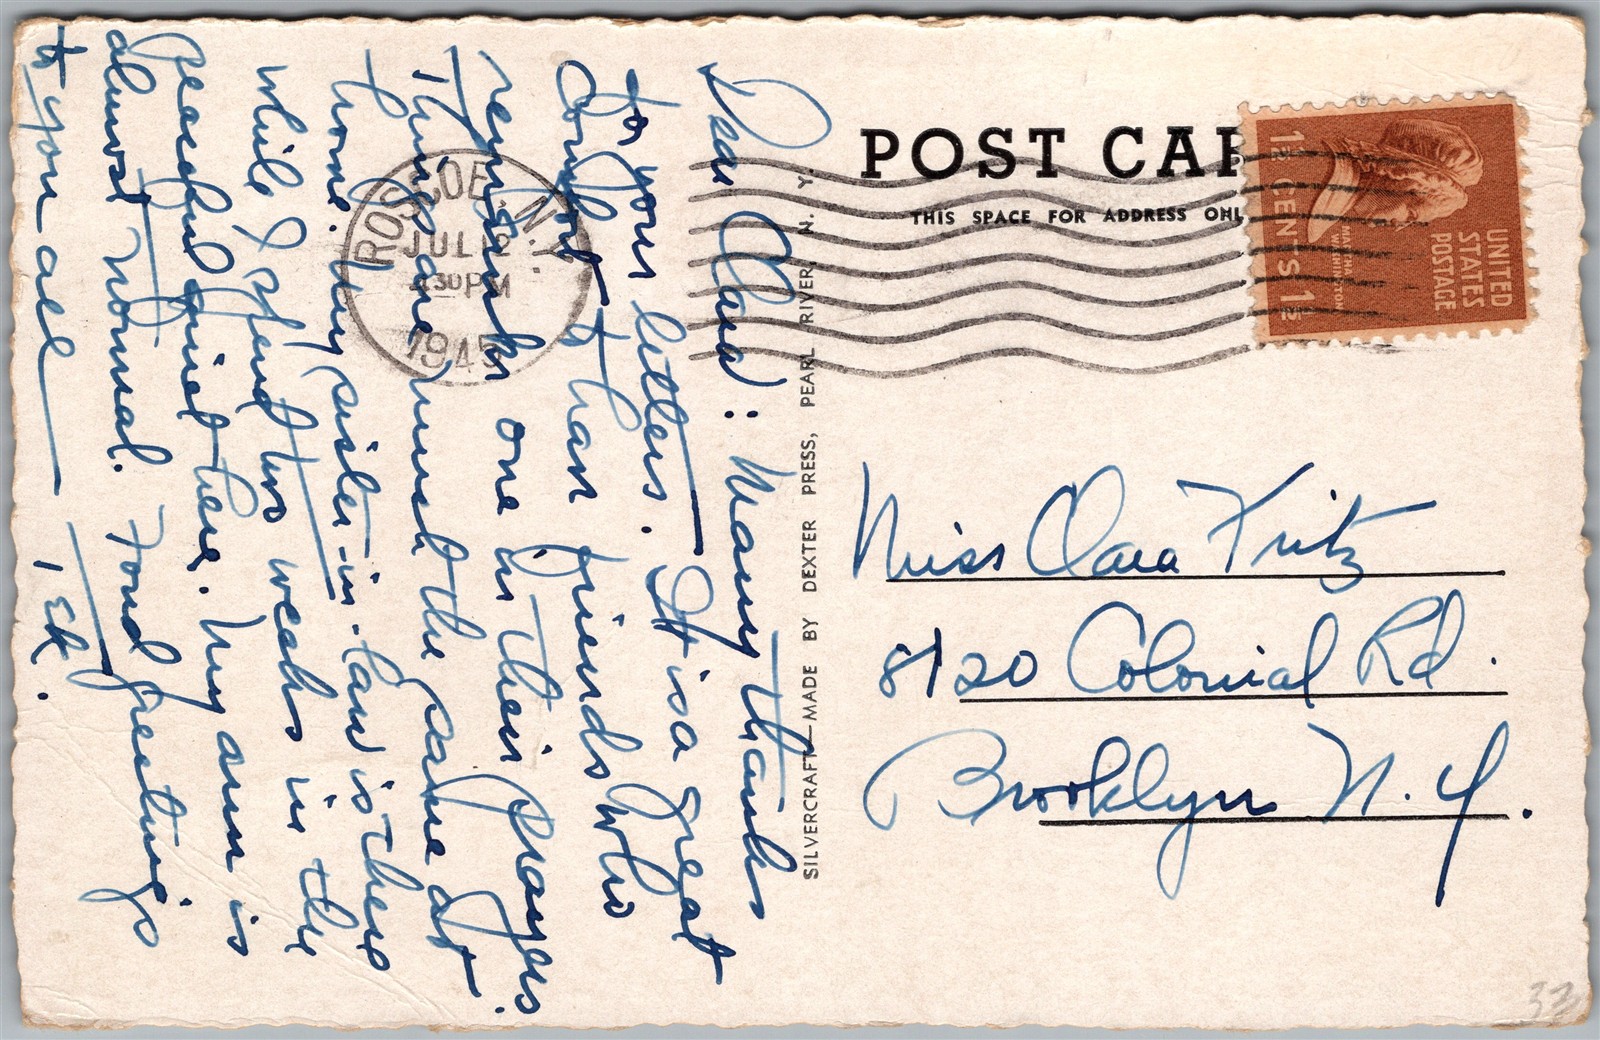 Dear Clara: Many thanks
for your letters. It is a great
comfort to have friends who
remember one in their prayers.
Things are much the same at
home. My sister-in-law is there
while I spend two weeks in the
peaceful quiet here. My arm is
almost normal. Fond greetings
to you all — EK.
POST CAR
THIS SPACE FOR ADDRESS ONL
ROSCOE, N.Y.
JUL 12
30 PM
1945
UNITED
STATES
POSTAGE
MARTHA
WASHINGTON
1½ CENTS 1½
SILVERCRAFT—MADE BY DEXTER PRESS, PEARL RIVER, N. Y.
Miss Clara Fritz
8120 Colonial Rd.
Brooklyn N. Y.
33